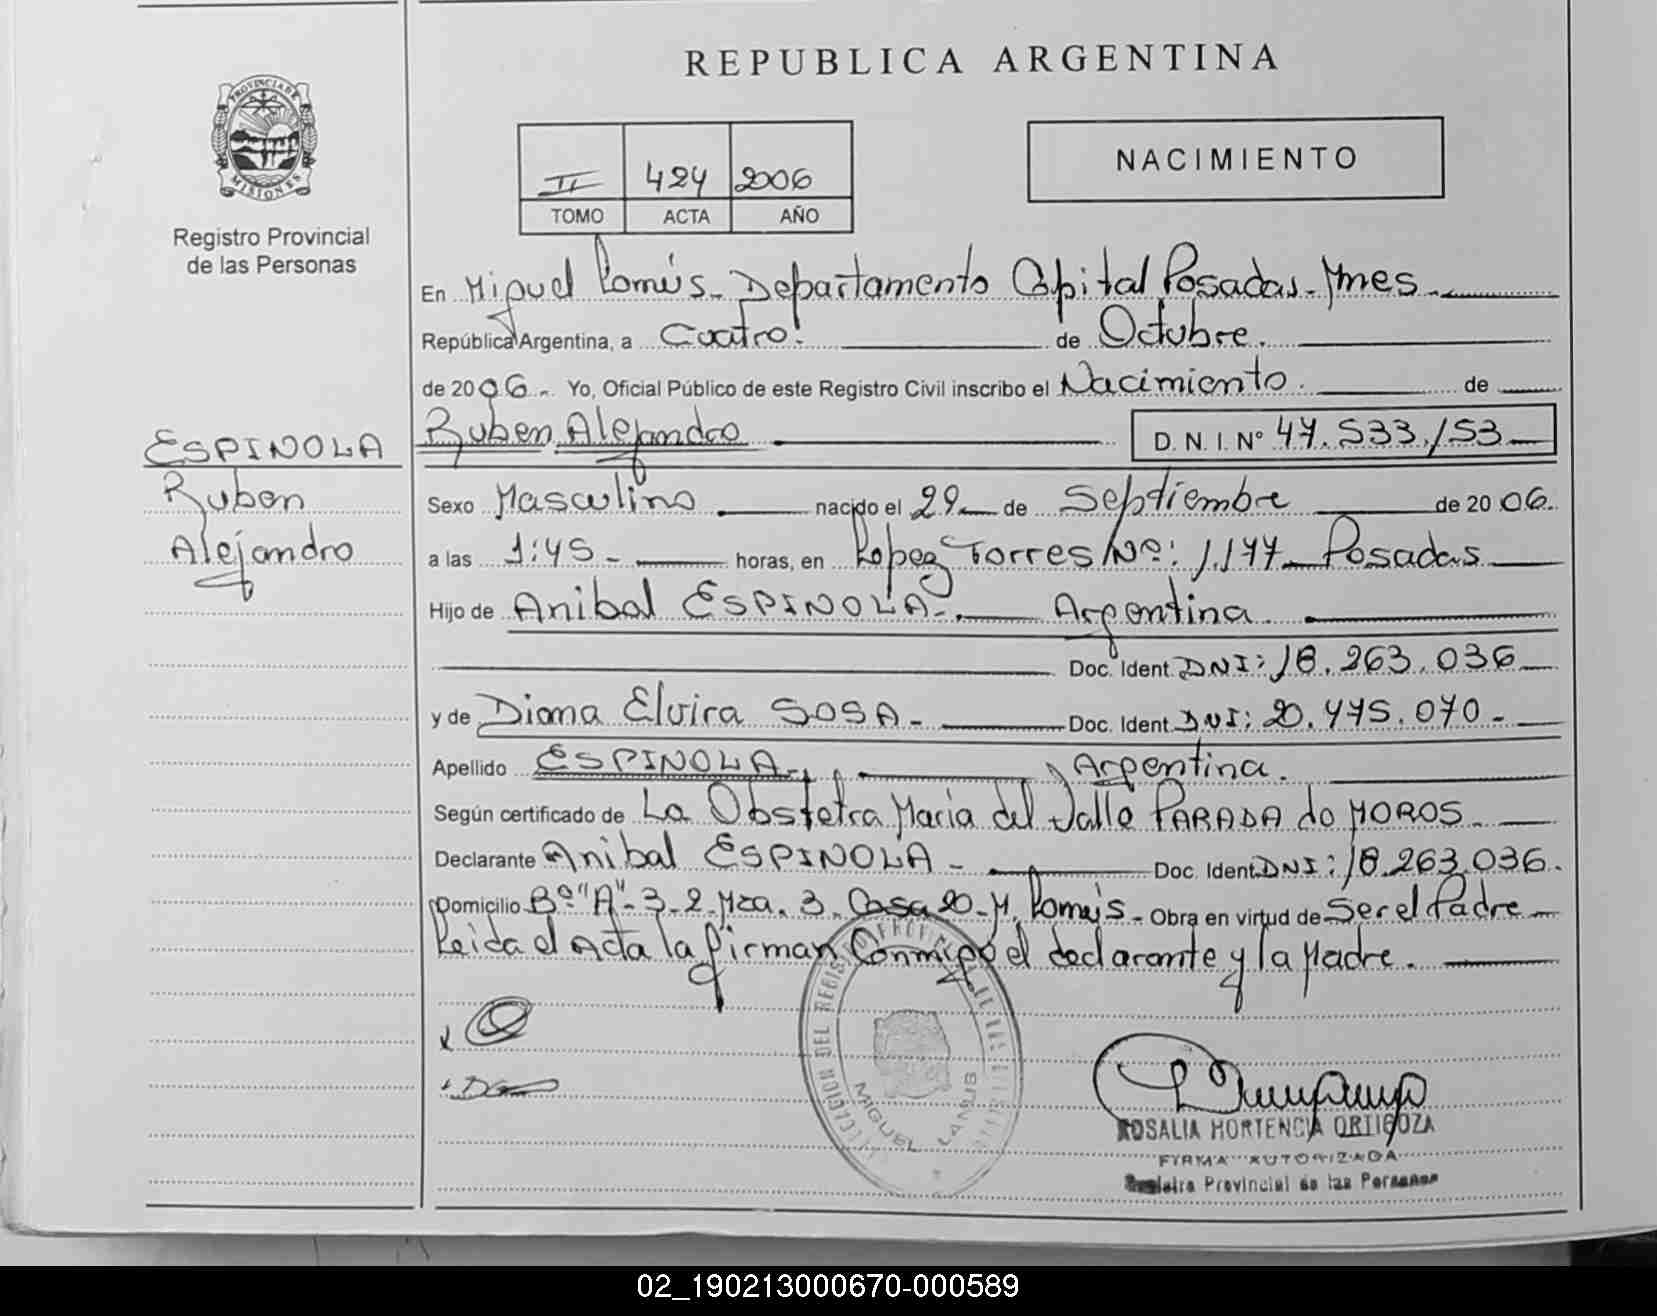 REPUBLICA ARGENTINA
PROVINCIA DE
MISIONES
Registro Provincial
de las Personas
II 424 2006
TOMO ACTA AÑO
NACIMIENTO
En Miguel Lanús - Departamento Capital Posadas - Mnes.
República Argentina, a Cuatro. de Octubre.
de 2006.- Yo, Oficial Público de este Registro Civil inscribo el Nacimiento. de
Ruben Alejandro D. N. I. Nº 47.533.153
ESPINOLA
Ruben
Alejandro
Sexo Masculino nacido el 29 de Septiembre de 2006.
a las 1:45 - horas, en Lopez Torres Nº: 1.177 - Posadas
Hijo de Anibal ESPINOLA - Argentina.
Doc. Ident. DNI: 18.263.036
y de Diana Elvira SOSA - Doc. Ident. DNI: 20.475.070 -
Apellido ESPINOLA - Argentina.
Según certificado de La Obstetra Maria del Valle PARADA de MOROS
Declarante Anibal ESPINOLA - Doc. Ident. DNI: 18.263.036.
Domicilio Bº "A"- 3-2 Mza. 3 Casa 20 - M. Lanús - Obra en virtud de Ser el Padre
Leida el Acta la firman Conmigo el declarante y la Madre.
MIGUEL LANUS
ROSALIA HORTENCIA ORTIGOZA
FIRMA AUTORIZADA
Registro Provincial de las Personas
02_190213000670-000589